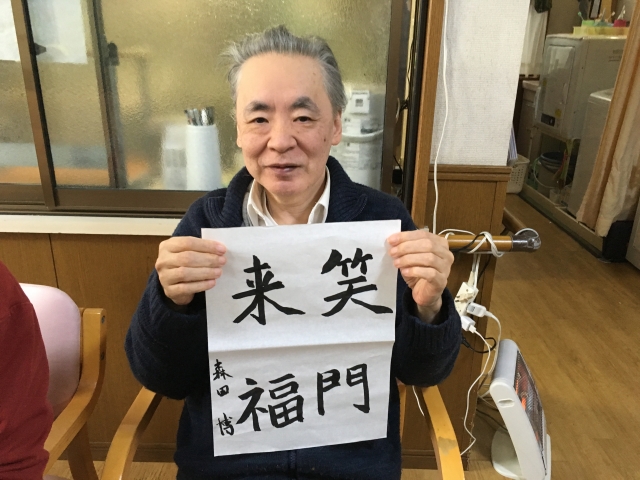 笑門
来福
森田 博